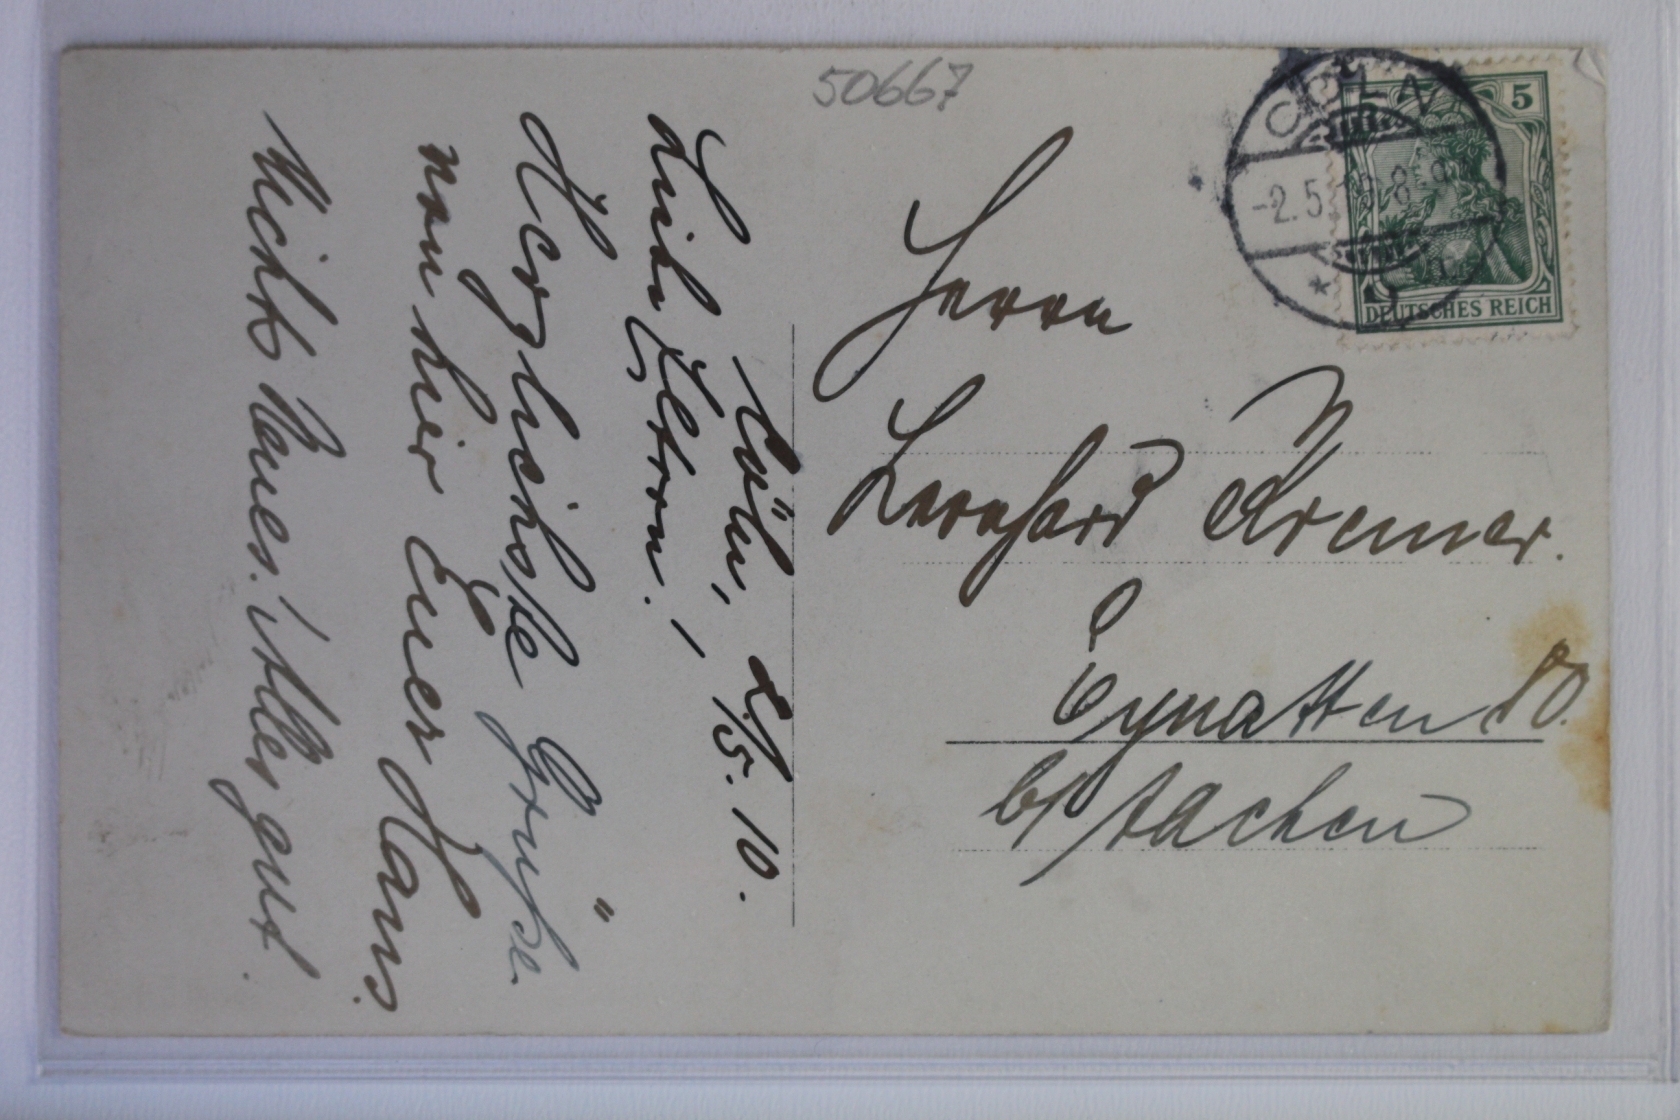 50667
CÖLN
-2.5.10.8-9
5
DEUTSCHES REICH
Herrn
Leonhard Kremer.
Eynatten
b/ Aachen
Cöln, 2/5. 10.
Liebe Eltern!
Herzlichste Grüße
von hier Euer Hans.
Nichts Neues. Alles gut.